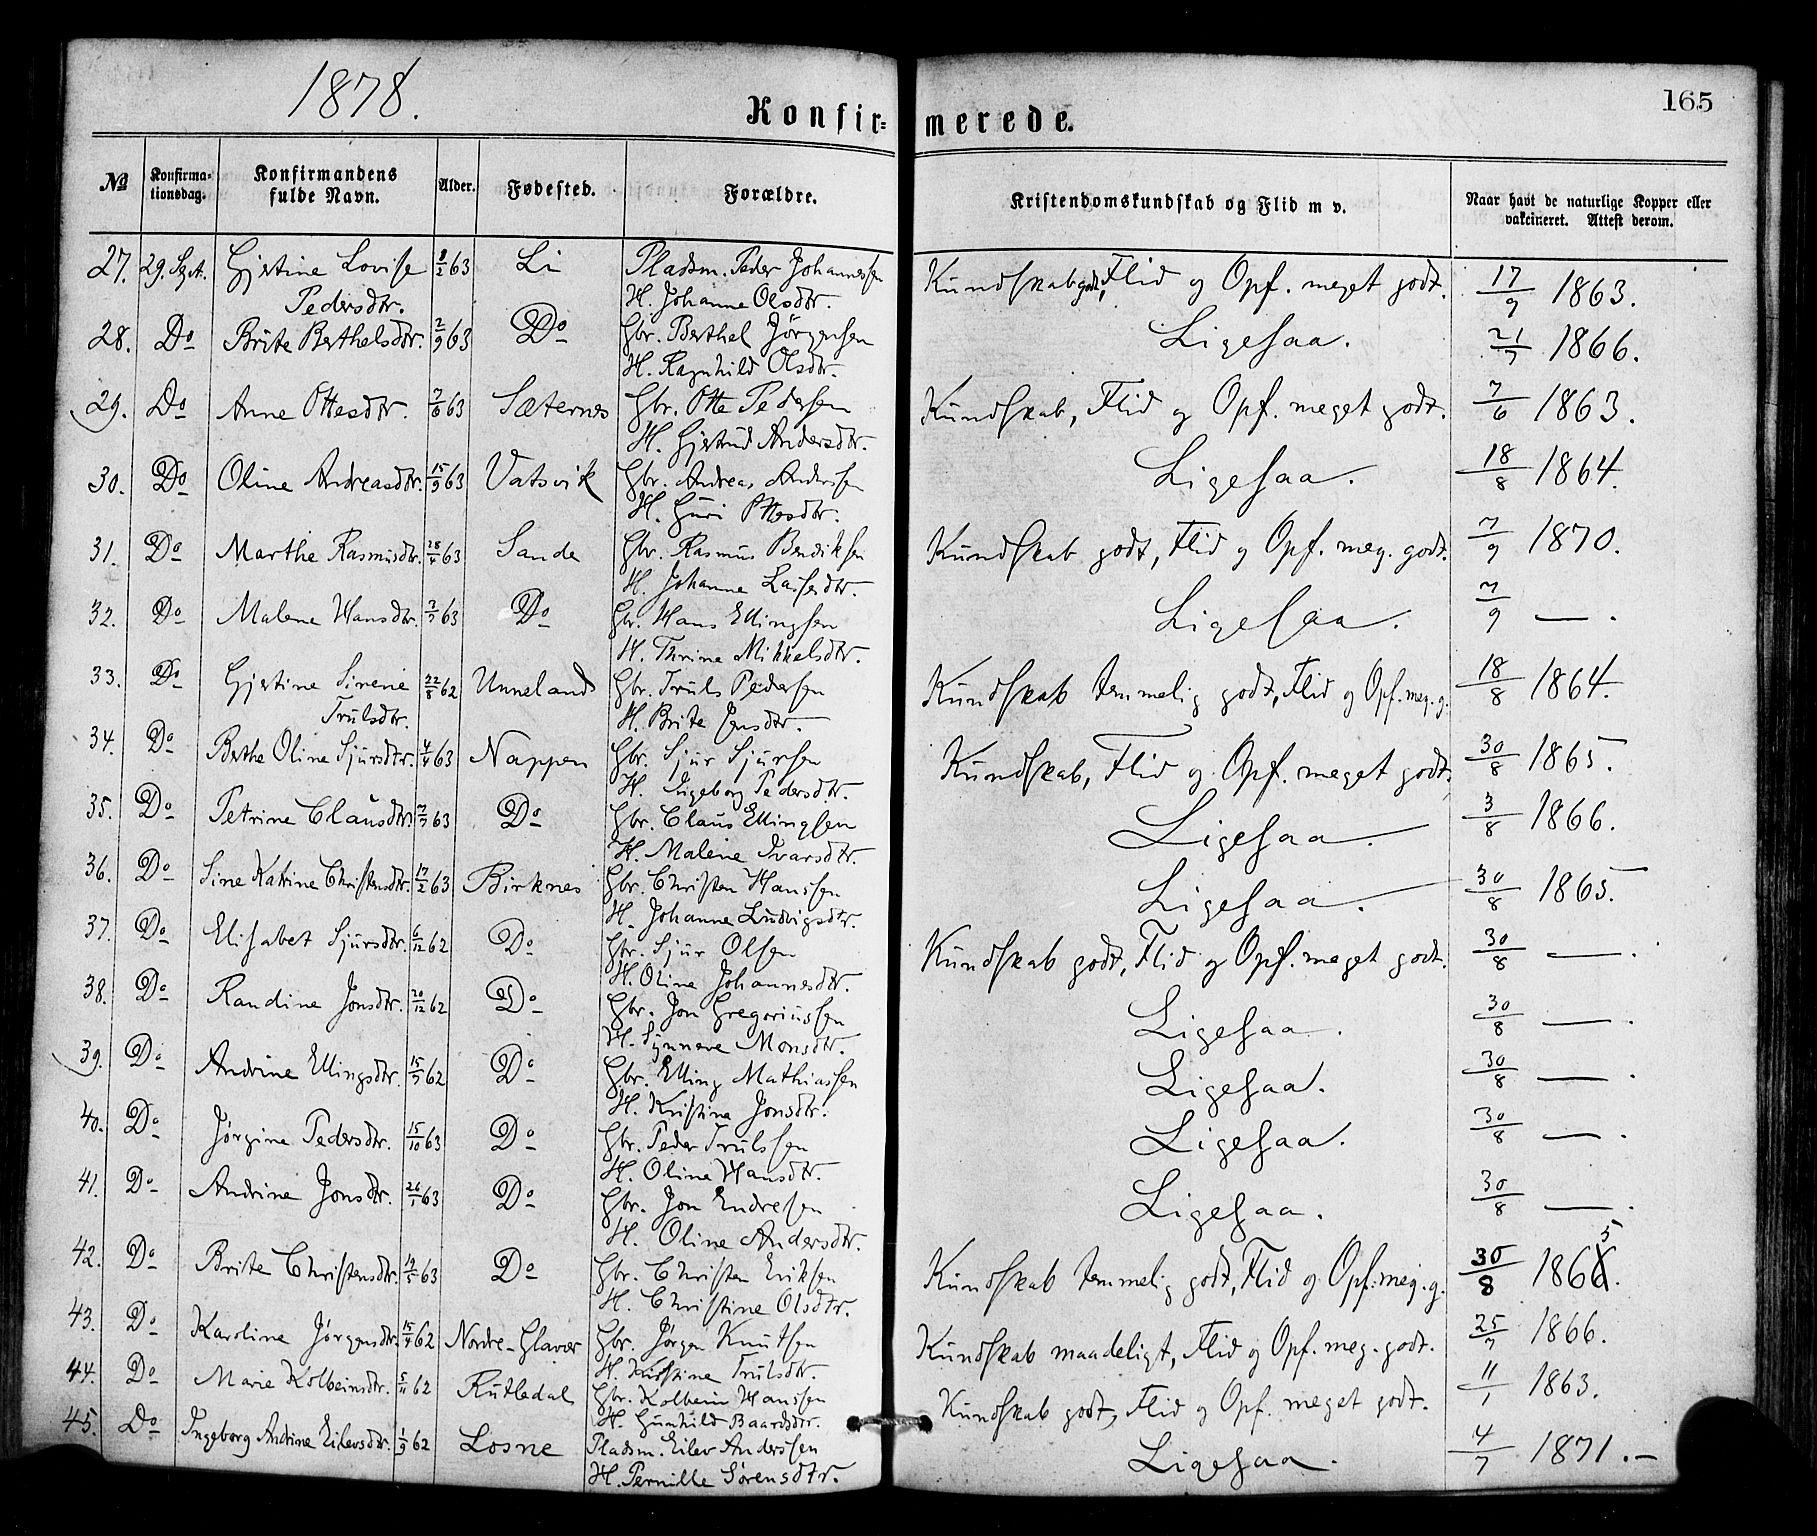 1878.
165
Konfir= merede.
No
Konfirma=
tionsdag.
Konfirmandens
fulde Navn.
Alder.
Fødested.
Forældre.
Kristendomskundskab og Flid m v.
Naar havt de naturlige Kopper eller
vakcineret. Attest derom.
27. 29. Sept. Gjertine Lovise 8/2 63 Li Pladsm. Peder Johannessen Kundskab godt, Flid og Opf. meget godt. 17/9 1863.
Pedersdtr. H. Johanne Olsdtr.
28. Do Brite Berthelsdtr. 2/9 63 Do Gbr. Berthel Jörgensen Ligesaa. 21/7 1866.
H. Ragnhild Olsdtr.
29. Do Anne Ottesdtr. 63 Sæternes Gbr. Otte Pedersen Kundskab, Flid og Opf. meget godt. 7/6 1863.
H. Gjertrud Andersdtr.
30. Do Oline Andreasdtr. 15/9 63 Vatsvik Gbr. Andreas Andersen Ligesaa. 18/8 1864.
H. Guri Ottesdtr.
31. Do Marthe Rasmusdtr. 28/4 63 Sande Gbr. Rasmus Bendiksen Kundskab godt, Flid og Opf. meg. godt. 7/9 1870.
H. Johanne Lassesdtr.
32. Do Malene Hansdtr. 63 Do Gbr. Hans Ellingsen Ligesaa. 7/9 — .
H. Thrine Mikkelsdtr.
33. Do Gjertine Sirene 22/8 62 Unneland Gbr. Truls Pedersen Kundskab temmelig godt, Flid og Opf. meg. g. 18/8 1864.
Trulsdtr. H. Brite Jensdtr.
34. Do Berthe Oline Sjursdtr. 4/4 63 Nappen Gbr. Sjur Sjursen Kundskab, Flid og Opf. meget godt. 30/8 1865.
H. Ingeborg Pedersdtr.
35. Do Petrine Clausdtr. 63 Do Gbr. Claus Ellingsen Ligesaa. 3/8 1866.
H. Malene Ivarsdtr.
36. Do Sine Katrine Christensdtr. 17/2 63 Birknes Gbr. Christen Hanssen Ligesaa. 30/8 1865.
H. Johanne Ludvigsdtr.
37. Do Elisabet Sjursdtr. 6/12 62 Do Gbr. Sjur Olsen Kundskab godt, Flid og Opf. meget godt. 30/8 — .
H. Oline Johannesdtr.
38. Do Randine Jonsdtr. 20/12 62 Do Gbr. Jon Gregoriussen Ligesaa. 30/8 — .
H. Synneve Monsdtr.
39. Do Andrine Ellingsdtr. 62 Do Gbr. Elling Mathiassen Ligesaa. 30/8 — .
H. Kristine Jonsdtr.
40. Do Jørgine Pedersdtr. 15/10 63 Do Gbr. Peder Trulssen Ligesaa. 30/8 — .
H. Oline Hansdtr.
41. Do Andrine Jonsdtr. 26/1 63 Do Gbr. Jon Endresen Ligesaa. 30/8 — .
H. Oline Andersdtr.
42. Do Brite Christensdtr. 63 Do Gbr. Christen Eriksen Kundskab temmelig godt, Flid og Opf. meg. g. 30/8 1865.
H. Christine Olsdtr.
43. Do Karoline Jørgensdtr. 15/4 62 Nordre-Glavær Gbr. Jørgen Knutsen Kundskab maadeligt, Flid og Opf. meg. godt. 25/7 1866.
H. Kristine Trulsdtr.
44. Do Marie Kolbeinsdtr. 5/11 62 Rutledal Gbr. Kolbein Hanssen Kundskab godt, Flid og Opf. meget godt. 11/1 1863.
H. Gunhild Baardsdtr.
45. Do Ingeborg Andrine Eilevsdtr. 1/9 62 Losne Pladsm. Eilev Anderssen Ligesaa. 4/7 1871. —
H. Pernille Sörensdtr.